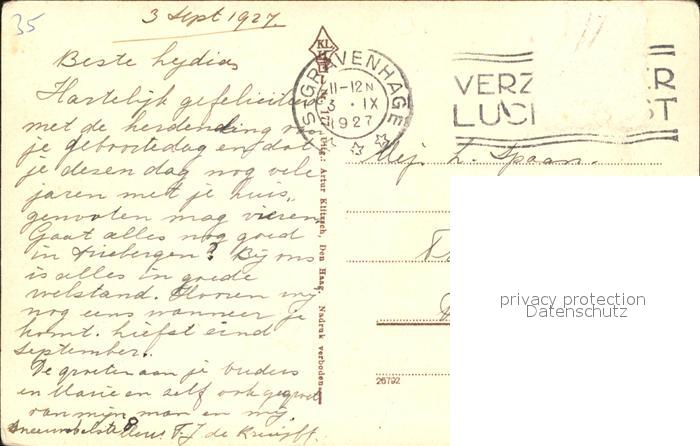 35
3 Sept 1927.
Beste Lydia
Hartelijk gefeliciteer
met de herdenking van
je geboortedag en dat
je dezen dag nog vele
jaren met je huis,
genooten mag vieren
Gaat alles nog goed
in Driebergen? Bij ons
is alles in goede
welstand. Hooren wij
nog eens wanneer je
komt. liefst eind
September.
De groeten aan je broeders
en Marie en zelf ook gegroet
van mijn man en mij.
F. J. de Kruijff.
'S GRAVENHAGE
11-12 N
3 . IX
1927
VERZ ER
LUC ST
Uitg.: Artur Klitzsch, Den Haag. Nadruk verboden.
Mej. L. Spaan.
26792
privacy protection
Datenschutz